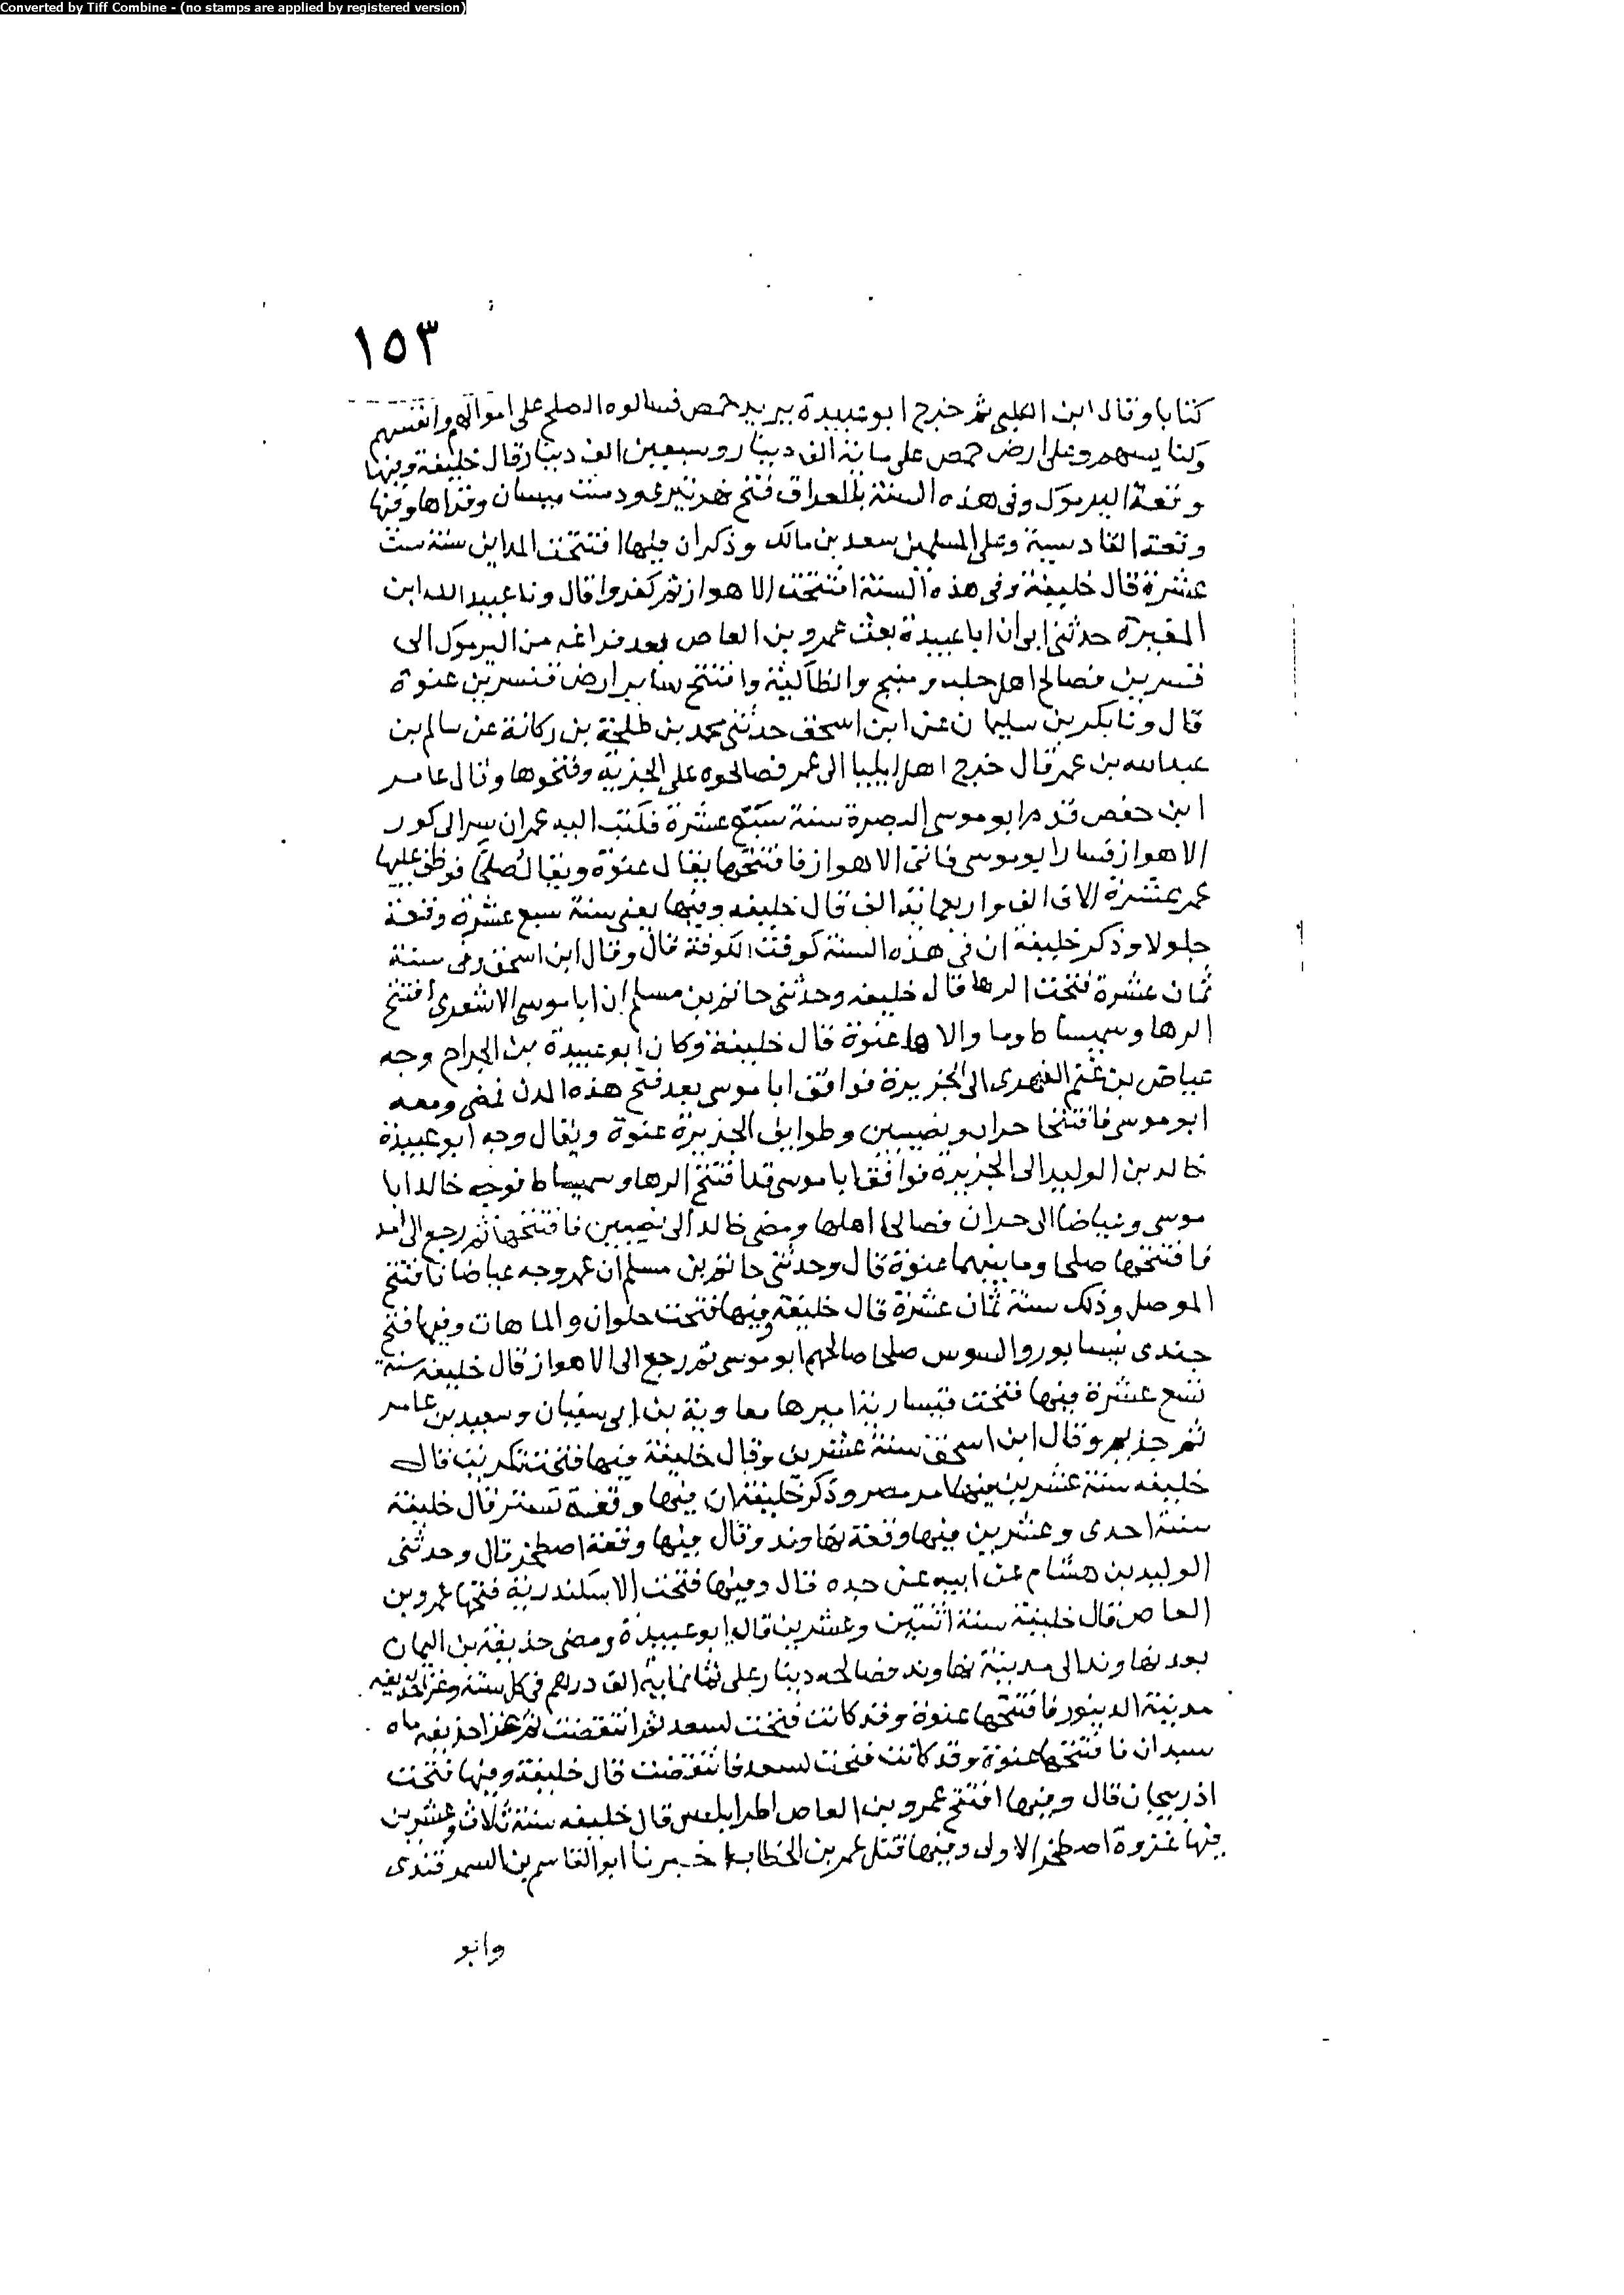 Converted by Tiff Combine - (no stamps are applied by registered version)
١٥٣
كتابا وقال ابن الكلبي ثم خرج ابو عبيدة يريد حمص فسالوه الصلح على اموالهم وانفسهم
وكنايسهم وعلى ارض حمص على ماية الف دينار وسبعين الف دينار قال خليفة وفيها
وقعة اليرموك وفى هذه السنة بالعراق فتح نهر تيرى ودست ميسان وقراها وفيها
وقعة القادسية وعلى المسلمين سعد بن مالك وذكر ان فيها افتتحت المداين سنة ست
عشرة قال خليفة وفى هذه السنة افتتحت الاهواز ثم كفروا قال ونا عبيد الله ابن
المغيرة حدثنى ابى ان ابا عبيدة بعث عمرو بن العاص بعد فراغه من اليرموك الى
قنسرين فصالح اهل حلب ومنبج وانطاكية وافتتح ساير ارض قنسرين عنوة
قال ونا بكر بن سليمان عن ابن اسحق حدثنى محمد بن طلحة بن ركانة عن سالم بن
عبد الله بن عمر قال خرج اهل ايليا الى عمر فصالحوه على الجزية وفتحوها وقال عامر
ابن حفص قدم ابو موسى البصرة سنة سبع عشرة فكتب اليه عمر ان سر الى كور
الاهواز فسار ابو موسى فاتى الاهواز فافتتحها يقال عنوة ويقال صلحا فوظف عليها
عمر عشرة الاف الف واربعماية الف قال خليفه وفيها يعنى سنة سبع عشرة وقعة
جلولا وذكر خليفة ان فى هذه السنة كوفت الكوفة قال وقال ابن اسحق وفى سنة
ثمان عشرة فتحت الرها قال خليفه وحدثنى حاتم بن مسلم ان ابا موسى الاشعرى افتتح
الرها وسميساط وما والاها عنوة قال خليفة وكان ابو عبيدة بن الجراح وجه
عياض بن غنم الفهرى الى الجزيرة فوافق ابا موسى بعد فتح هذه المدن فمضى ومعه
ابو موسى فافتتحا حران ونصيبين وطوايف الجزيرة عنوة ويقال وجه ابو عبيدة
خالد بن الوليد الى الجزيرة فوافق ابا موسى قد افتتح الرها وسميساط فوجه خالد ابا
موسى وعياضا الى حران فصالحا اهلها ومضى خالد الى نصيبين فافتتحها ثم رجع الى امد
فافتتحها صلحا وما بينهما عنوة قال وحدثنى حاتم بن مسلم ان عمر وجه عياضا فافتتح
الموصل وذلك سنة ثمان عشرة قال خليفة وفيها فتحت حلوان والماهات وفيها فتح
جندى نيسابور والسوس صلحا صالحهم ابو موسى ثم رجع الى الاهواز قال خليفه سنة
تسع عشرة فيها فتحت قيسارية اميرها معاوية بن ابى سفيان وسعيد بن عامر
ثم حذيم وقال ابن اسحق سنة عشرين وقال خليفة فيها فتحت تكريت قال
خليفه سنة عشرين فيها امر مصر وذكر خليفة ان فيها وقعة تستر قال خليفة
سنة احدى وعشرين فيها وقعة نهاوند وقال فيها وقعة اصطخر قال وحدثنى
الوليد بن هشام عن ابيه عن جده قال وفيها فتحت الاسكندرية فتحها عمرو بن
العاص قال خليفة سنة اثنتين وعشرين قال ابو عبيدة ومضى حذيفة بن اليمان
بعد نهاوند الى مدينة نهاوند فصالحه دينار على ثمانماية الف درهم فى كل سنة وغزا حذيفه
مدينة الدينور فافتتحها عنوة وقد كانت فتحت لسعد ثم انتقضت ثم غزا حذيفه ماه
سبدان فافتتحها عنوة وقد كانت فتحت لسعد فانتقضت قال خليفة وفيها فتحت
اذربيجان قال وفيها افتتح عمرو بن العاص اطرابلس قال خليفه سنة ثلاث وعشرين
فيها غزوة اصطخر الاولى وفيها قتل عمر بن الخطاب اخبرنا ابو القاسم بن السمرقندى
وابو